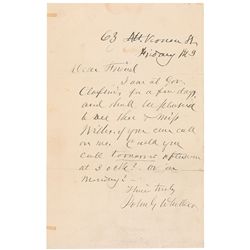 63 Mt. Vernon St.
Friday M
Dear Friend
I am at Gov.
Claflin's for a few days
and shall be pleased
to see thee & Miss
if you can call
on me. Could you
call tomorrow afternoon
at 3 o'clk? or on
Monday?
Thine truly
John G Whittier